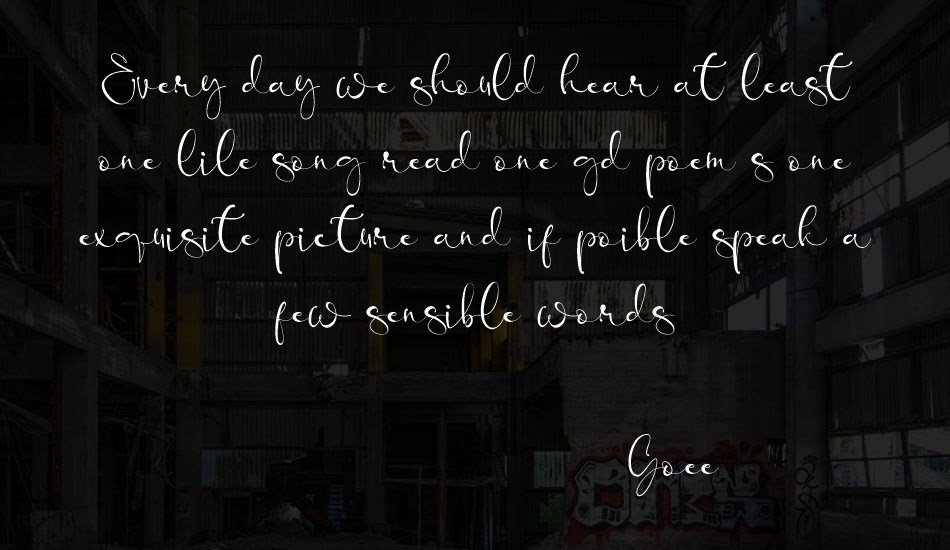 Every day we should hear at least
one lile song read one gd poem s one
exquisite picture and if poible speak a
few sensible words
Goee